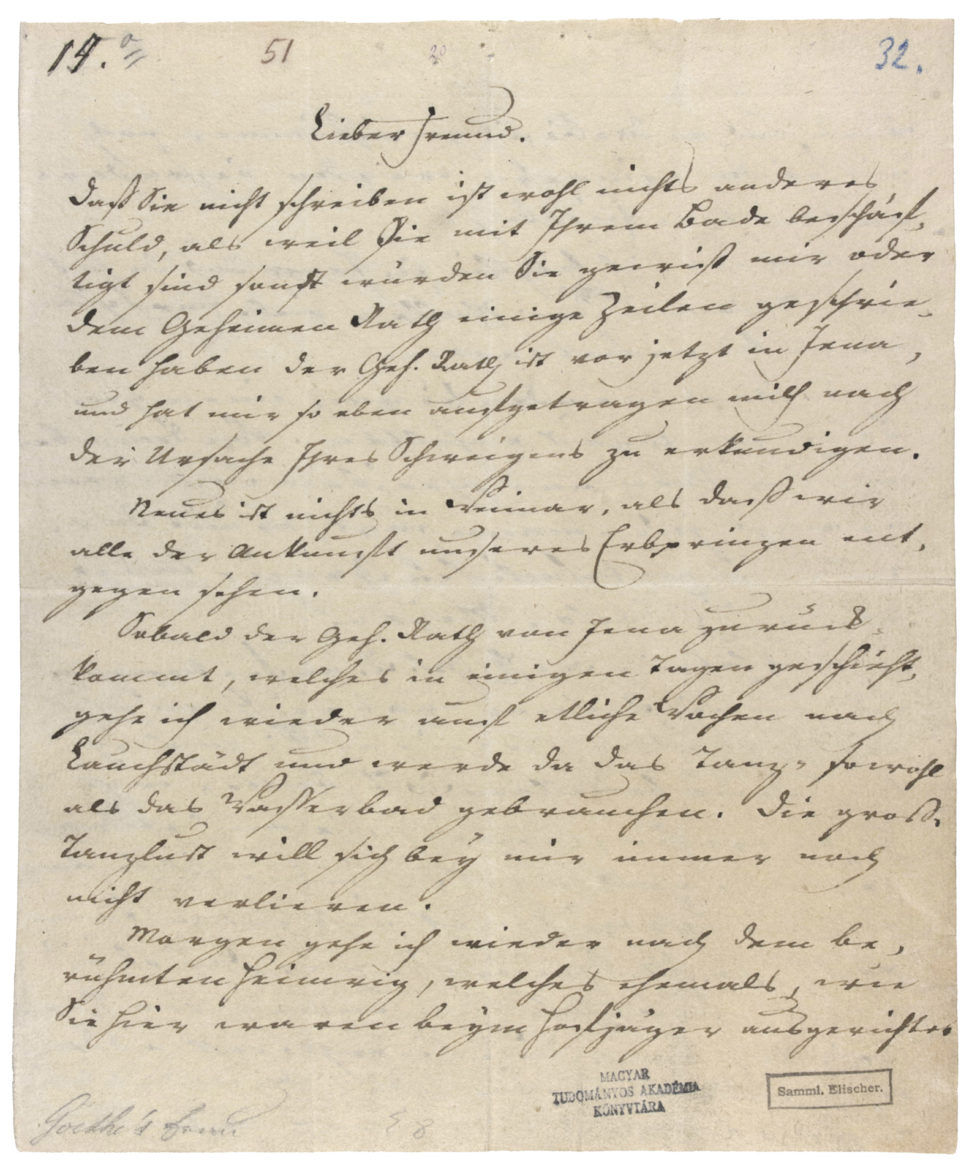 19. a
51
30
32.
Lieber Freund.
Daß Sie nicht schreiben ist wohl nichts anderes
Schuld, als weil Sie mit Ihrem Bade beschäf-
tigt sind sonst würden Sie gewiß mir oder
dem Geheimen Rath einige Zeilen geschrie-
ben haben der Geh. Rath ist vor jetzt in Jena,
und hat mir so eben aufgetragen mich nach
der Ursache Ihres Schweigens zu erkundigen.
Neues ist nichts in Weimar, als daß wir
alle der Ankunft unseres Erbprinzen ent-
gegen sehen.
Sobald der Geh. Rath von Jena zurück-
kommt, welches in einigen Tagen geschieht,
gehe ich wieder auf etliche Wochen nach
Lauchstädt und werde da das Tanz- sowohl
als das Wasserbad gebrauchen. Die große
Tanzlust will sich bey mir immer noch
nicht verlieren.
Morgen gehe ich wieder nach dem be-
rühmten, welches ehemals, wie
Sie hier waren beym Hofjäger ausgerichtet
MAGYAR
TUDOMÁNYOS AKADÉMIA
KÖNYVTÁRA
Samml. Elischer.
Goethe's Frau
8